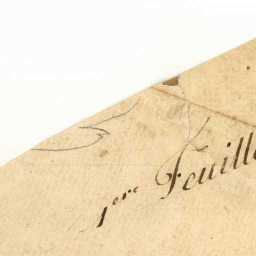 1ere Feuille